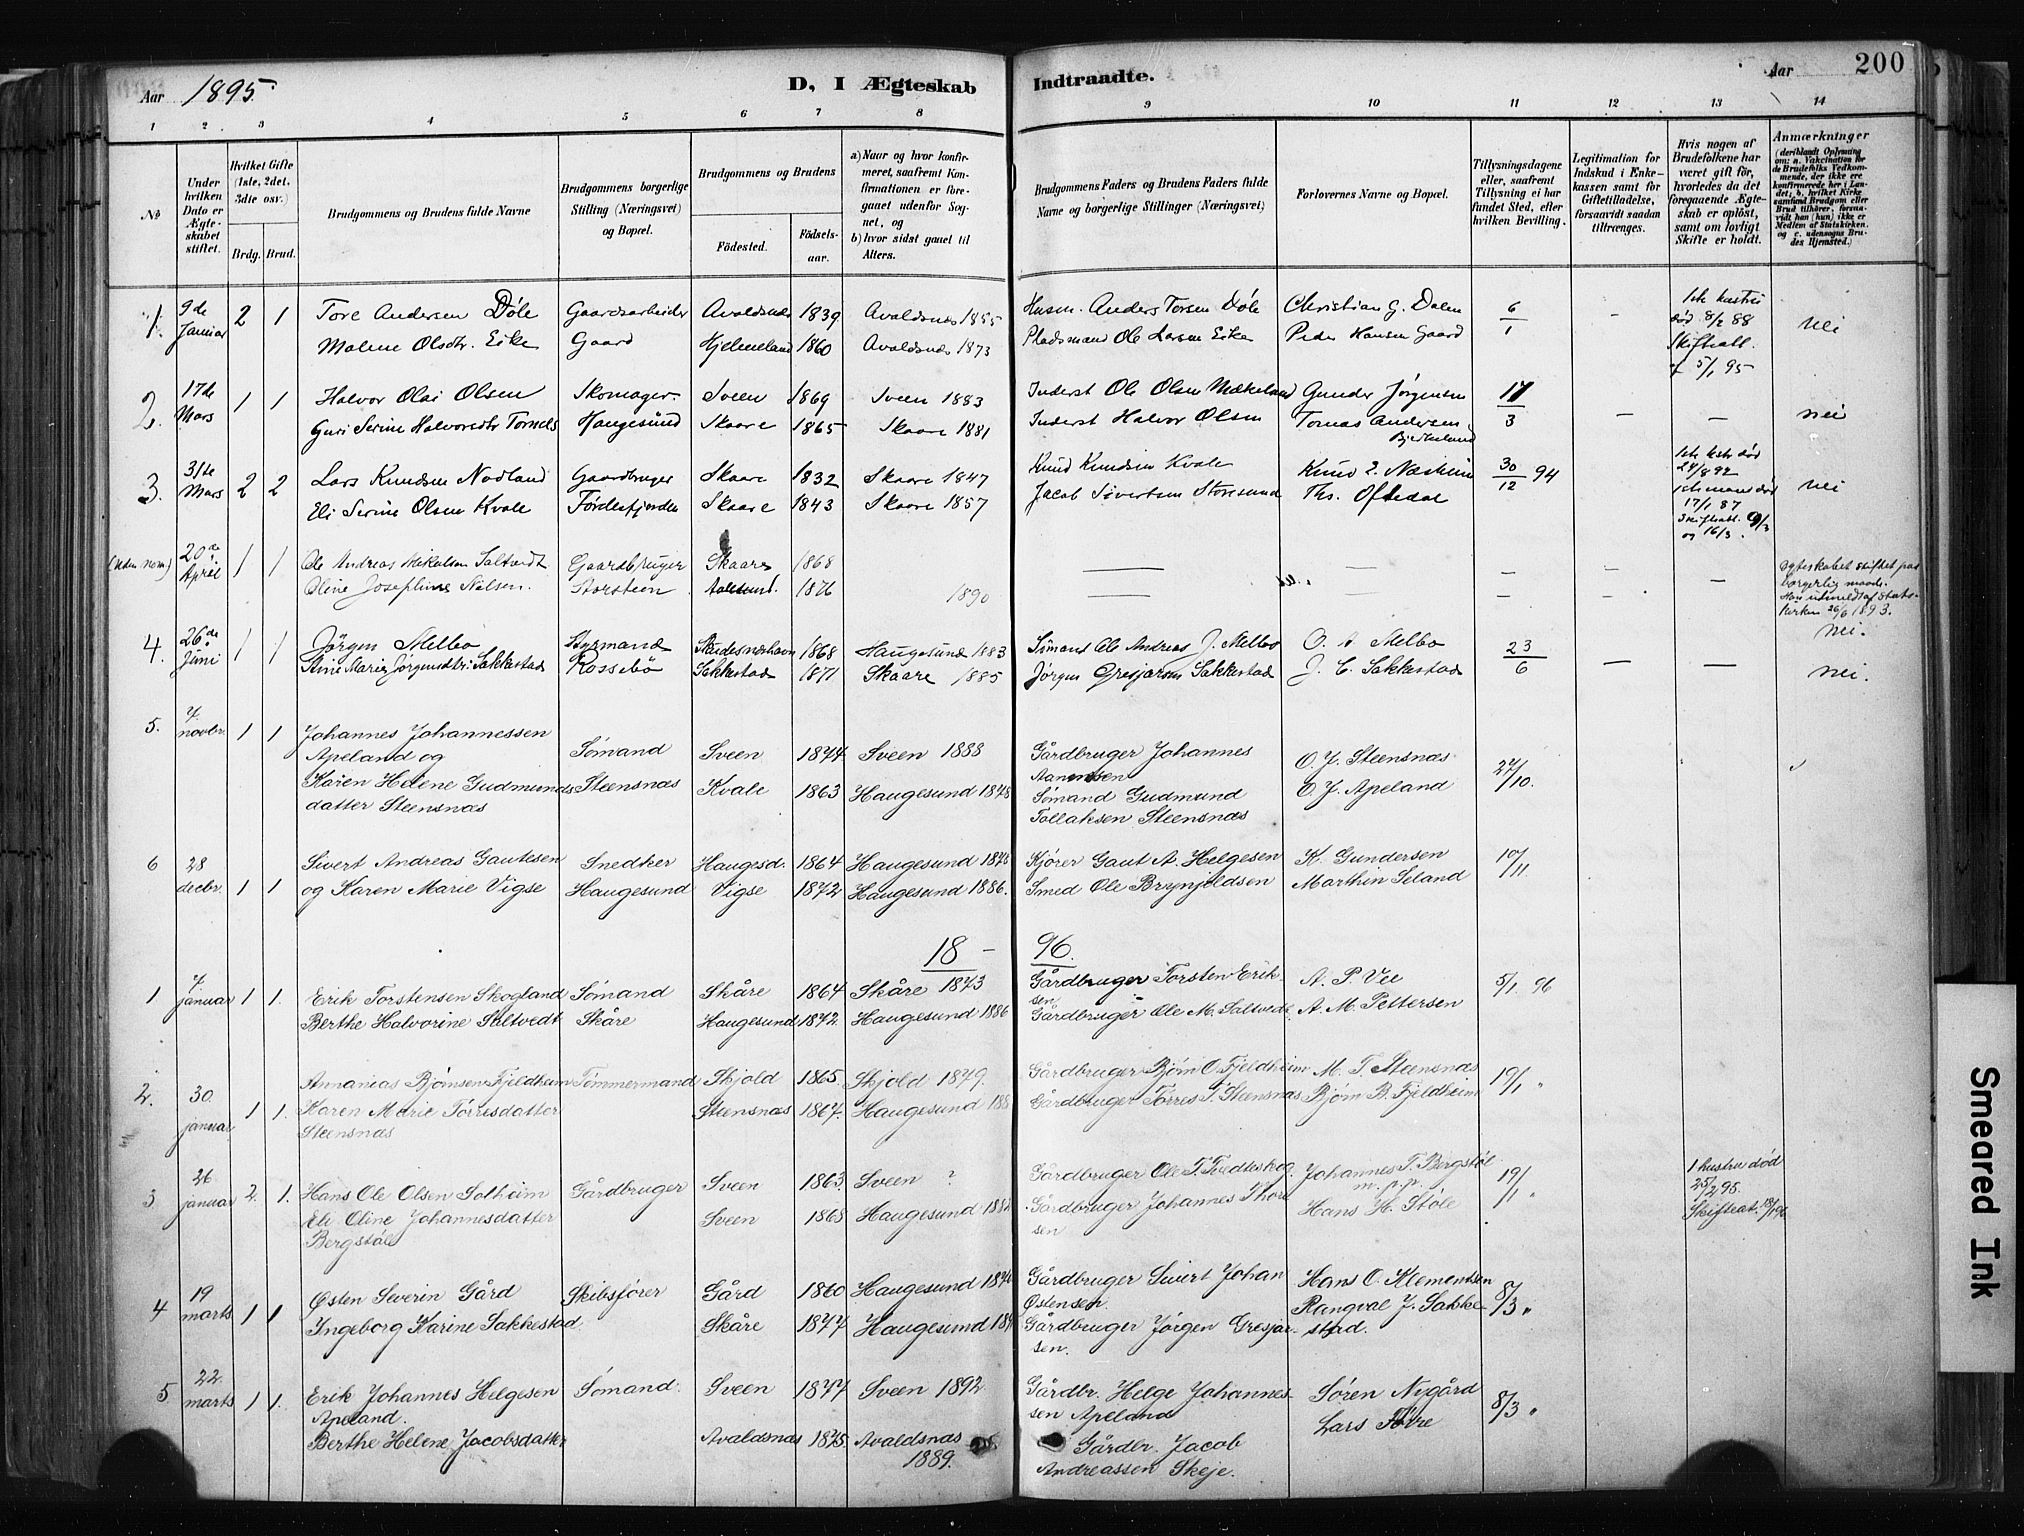 Aar 1895.
D, I Ægteskab Indtraadte.
Aar 200
1 2 3 4 5 6 7 8 9 10 11 12 13 14
No
Under hvilken Dato er Ægteskabet stiftet.
Hvilket Gifte (1ste, 2det, 3die osv.)
Brdg. Brud.
Brudgommens og Brudens fulde Navne
Brudgommens borgerlige Stilling (Næringsvei) og Bopæl.
Brudgommens og Brudens
Fødested. Fødselsaar.
a) Naar og hvor konfirmeret, saafremt Konfirmationen er foregaaet udenfor Sognet, og
b) hvor sidst gaaet til Alters.
Brudgommens Faders og Brudens Faders fulde Navne og borgerlige Stillinger (Næringsvei)
Forlovernes Navne og Bopæl.
Tillysningsdagene eller, saafremt Tillysning ei har fundet Sted, efter hvilken Bevilling.
Legitimation for Indskud i Enkekassen samt for Giftetilladelse, forsaavidt saadan tiltrænges.
Hvis nogen af Brudefolkene har været gift før, hvorledes da det foregaaende Ægteskab er opløst, samt om lovligt Skifte er holdt.
Anmærkninger
(deriblandt Oplysning om: a. Vakcination for de Brudefolks Vedkommende, der ikke ere konfirmerede her i Landet; b. hvilket Kirkesamfund Brudgom eller Brud tilhører, forsaavidt han (hun) ikke er Medlem af Statskirken, og c. udensogns Brudes Hjemsted.)
1. 9de Januar 2 1 Tore Andersen Döle Gaardsarbeider Avaldsnæs 1839 Avaldsnæs 1855 Husm. Anders Torsen Döle Christian G. Dalen 6/1 - 1ste hustru död 8/2 88 Skifteatt. 5/1 95 Nei
Malene Olsdtr. Eike Gaard Hjelmeland 1860 Avaldsnæs 1873 Pladsmand Ole Larsen Eike Peder Hansen Gaard
2. 17de Mars 1 1 Halvor Olai Olsen Skomager Sveen 1869 Sveen 1883 Inderst Ole Olsen Mækeland Gunder Jørgensen 17/3 - - Nei
Guri Serine Halvorsdtr Tornes Haugesund Skaare 1865 Skaare 1881 Inderst Halvor Olsen Tomas Andersen
3. 31te Mars 2 2 Lars Knudsen Nodland Gaardbruger Skaare 1832 Skaare 1847 Knud Knudsen Kvale Knud 30/12 94 1ste kone död 24/8 92 Nei
Eli Serine Olsen Kvale Fördesfjorden Skaare 1843 Skaare 1857 Jacob Sivertsen Storesund Ths. Oftedal 1ste mand död 17/1 87 Skifteatt. 9/3 og 16/3.
(Uden nom.) 20de April 1 1 Ole Andreas Mikalsen Saltvedt Gaardbruger Skaare 1868
Oline Josephine Nilsen. Storsteen Aalesund. 1876 1890
Egteskabet stiftet paa borgerlig maade. Han udmeldt af Statskirken 26/6 1893.
4. 26de Juni 1 1 Jørgen Melbo Styrmand Skudesneshavn 1868 Haugesund 1883 Sömand Ole Andreas J. Melbo O. A. Melbo 23/6 - - Nei.
Ane Marie Jørgensdtr. Sakkestad Rossebö Sakkestad 1871 Skaare 1885 Jørgen Gresjarsen Sakkestad J. C. Sakkestad Nei.
5. 7. novbr. 1 1 Johannes Johannessen Apeland og Sömand Sveen 1874 Sveen 1888 Gårdbruger Johannes Aanensen O. J. Steensnæs 27/10.
Karen Helene Gudmundsdatter Steensnæs Steensnæs Kvale 1863 Haugesund 1878 Sömand Gudmund Tollaksen Steensnæs O. J. Apeland
6 28 decbr. 1 1 Sivert Andreas Gautesen Snedker Haugesd. 1864 Haugesund 1878 Kjører Gaut A. Helgesen K. Gundersen 10/11.
og Karen Marie Vigse Haugesund Vigse 1872 Haugesund 1886. Smed Ole Brynjeldsen Marthin Seland
18 - 96.
1 7 januar 1 1. Erik Torstensen Skogland Sömand Skåre 1864 Skåre 1873 Gårdbruger Torsten Eriksen A. P. Vee 5/1. 96
Berthe Halvorine Saltvedt Skåre Haugesund 1872. Haugesund 1886 Gårdbruger Ole M. Saltvedt A. M. Pettersen
2. 30. januar 1 1. Annanias Bjørnsen Fjeldheim Tømmermand Skjold 1865. Skjold 1879. Gårdbruger Bjørn O. Fjeldheim M. T. Steensnæs 19/1 "
Karen Marie Tørresdatter Steensnæs Steensnæs 1867. Haugesund 188 Gårdbruger Tørres T. Steensnæs Bjørn B. Fjeldheim
3 26 januar 2. 1. Hans Ole Olsen Solheim Gårdbruger Sveen 1863. Sveen ? Gårdbruger Ole T. Tvedteskog. Johannes T. Bergstöl m.p.p. 19/1 " 1 hustru död 25/2 95. Skifteat. 18/1 96
Eli Oline Johannesdatter Bergstöl Sveen 1868 Haugesund 1882 Gårdbruger Johannes Thorsen Hans H. Støle
4 19 marts 1 1 Østen Severin Gård Skibsfører Gård 1860 Haugesund 187 Gårdbruger Sivert Johan Østensen. Hans O. Klementsen 8/3 "
Ingeborg Karine Sakkestad Skåre 1877 Haugesund 189 Gårdbruger Jörgen Gresjarsen. Rangval J. Sakkestad.
5. 22. marts 1 1. Erik Johannes Helgesen Apeland. Sömand. Sveen 1877 Sveen 1892 Gårdbr. Helge Johannessen Apeland Søren Nygård 8/3 "
Berthe Helene Jacobsdatter Avaldsnæs 1875. Avaldsnæs 1889. Gårdbr. Jacob Andreassen Skeje. Lars Føre
Smeared Ink